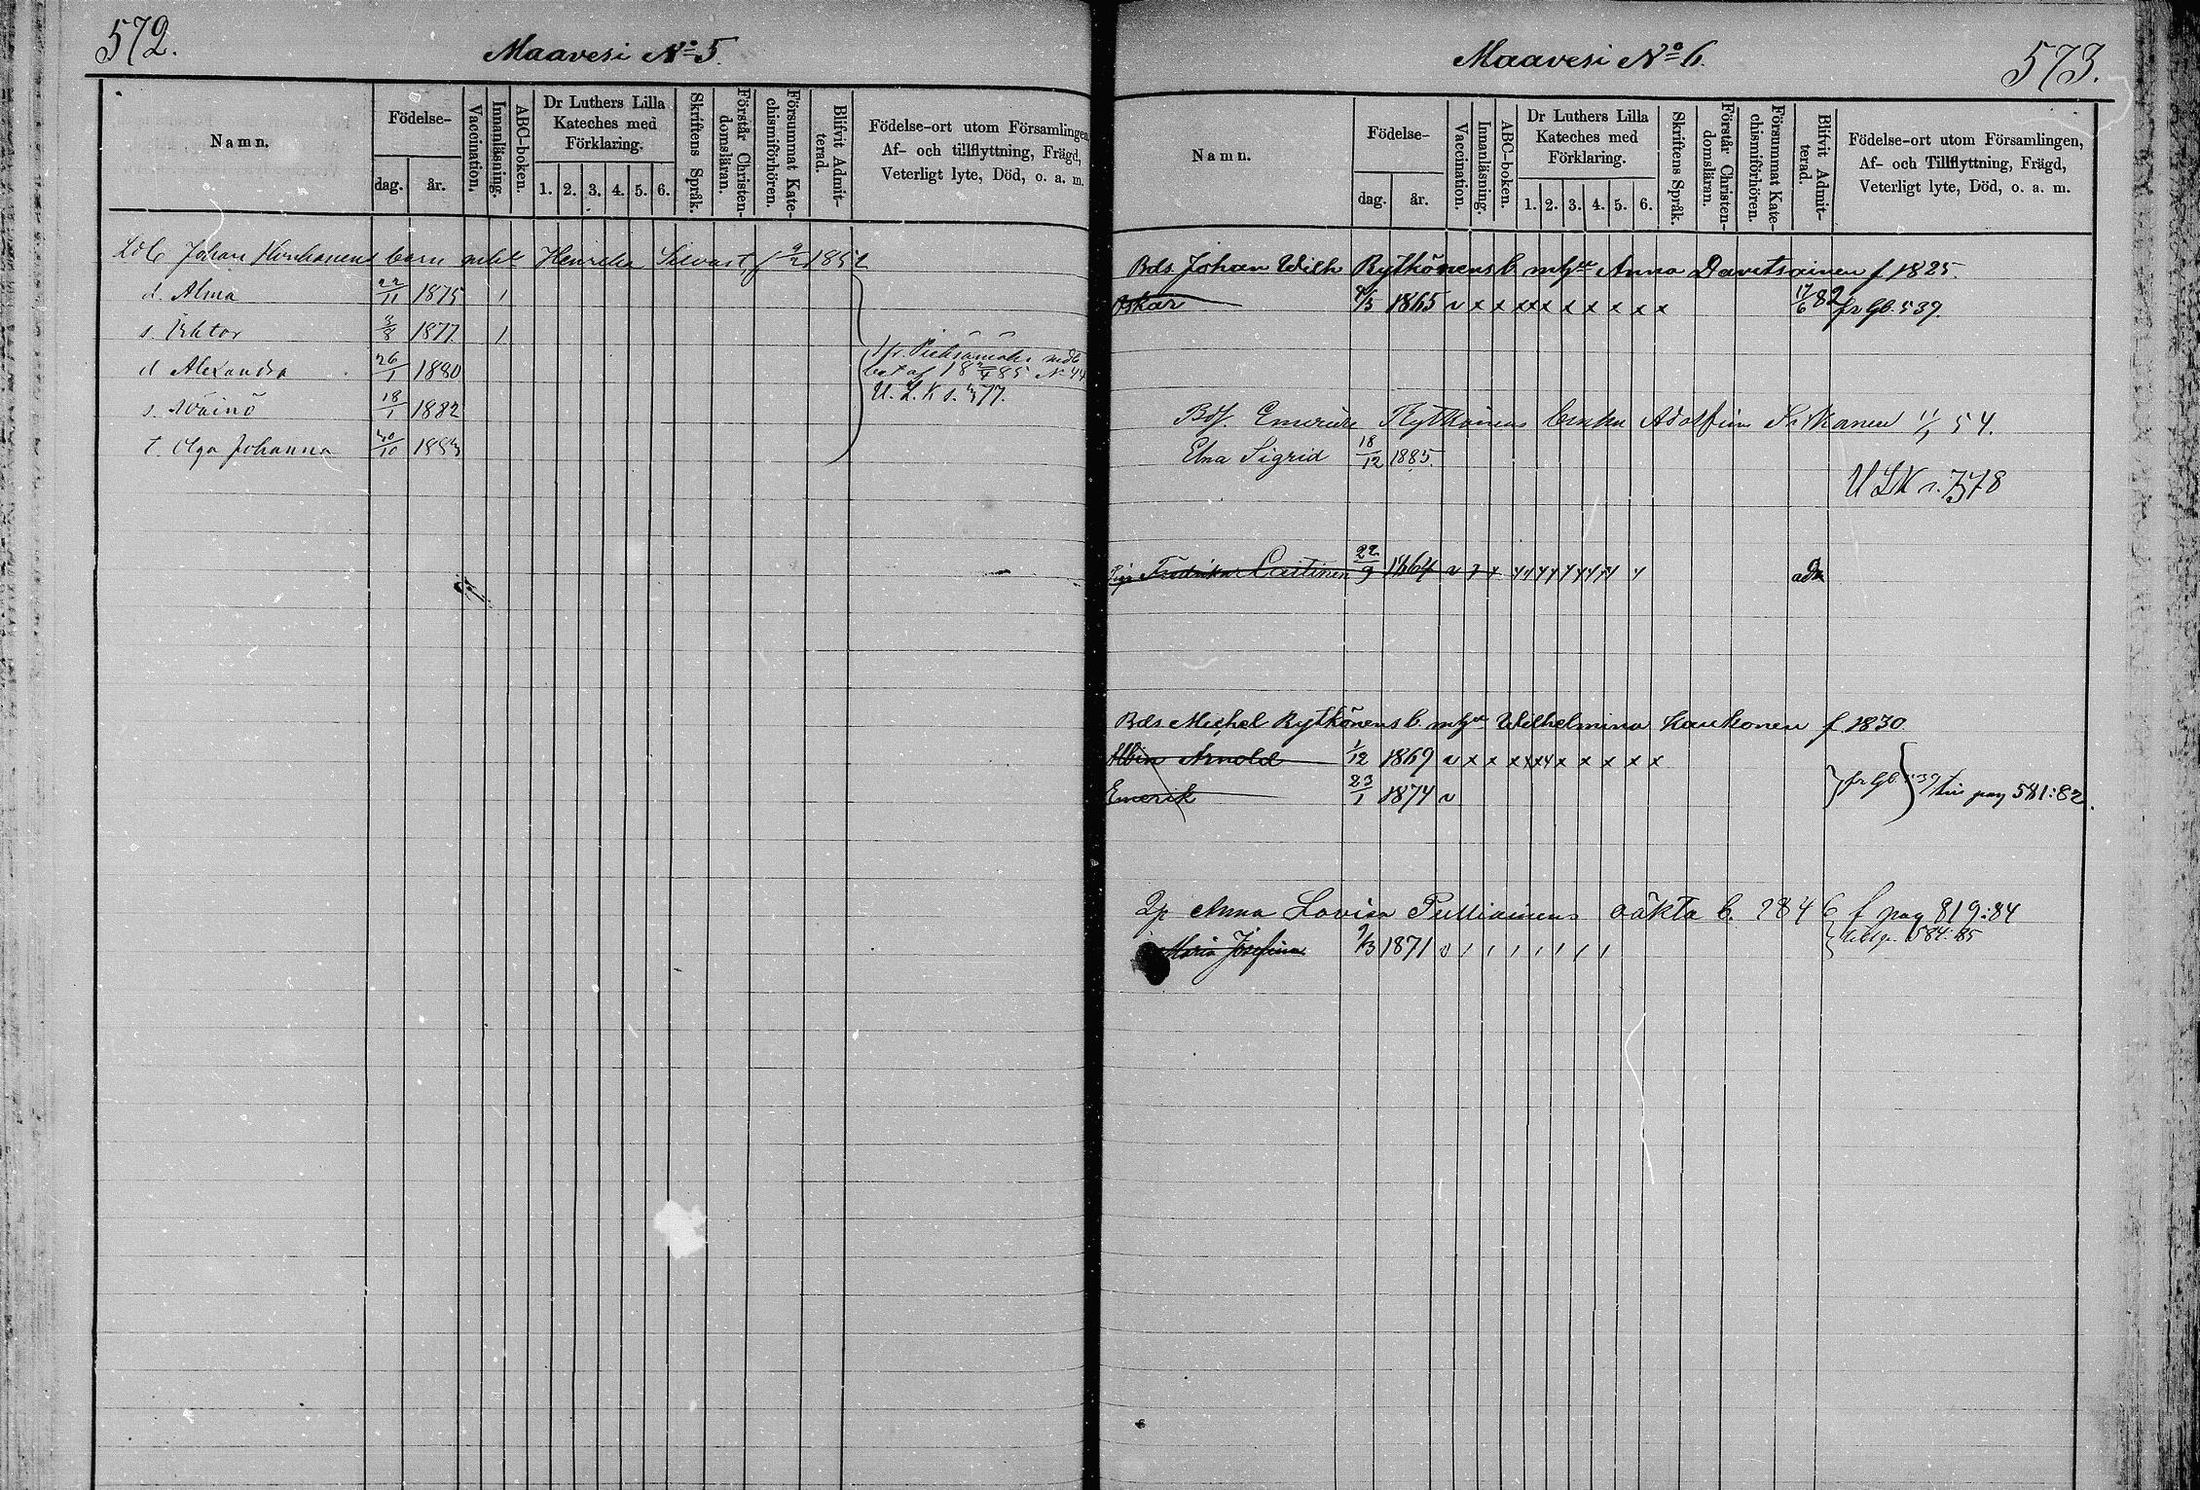 572.
Maavesi No 5.
Namn.
Födelse-
dag.
år.
Vaccination.
Innanläsning.
ABC-boken.
Dr Luthers Lilla
Kateches med
Förklaring.
1. 2. 3. 4. 5. 6.
Skriftens Språk.
Förstår Christen-
domsläran.
Försummat Kate-
chismiförhören.
Blifvit Admit-
terad.
Födelse-ort utom Församlingen,
Af- och tillflyttning, Frägd,
Veterligt lyte, Död, o. a. m.
Johan barn Henrika Silvast f 9/2 1852
d. Alma 22/11 1875 1
s. Viktor 1877 1
d Alexandra 26/1 1880
s. Wäinö 18/1 1882
t. Olga Johanna 30/10 1883
fr. Pieksämäki
bet af 18 85 N 44
U. L. K s. 377.
573.
Maavesi No 6.
Namn.
Födelse-
dag.
år.
Vaccination.
Innanläsning.
ABC-boken.
Dr Luthers Lilla
Kateches med
Förklaring.
1. 2. 3. 4. 5. 6.
Skriftens Språk.
Förstår Christen-
domsläran.
Försummat Kate-
chismiförhören.
Blifvit Admit-
terad.
Födelse-ort utom Församlingen,
Af- och Tillflyttning, Frägd,
Veterligt lyte, Död, o. a. m.
Bds Johan Wilh Rytkönens b. m Anna Davitsainen f 1825.
Oskar 4/5 1865 v x x x x x x x x x x 17/6 82 fr gb. 537.
Rytkönens Adolfina 54.
Elna Sigrid 18/12 1885.
U L K s. 378
Fredrika Lastinen 22/9 1864 adm
Bds Michel Rytkönens b. m Wilhelmina Laukonen f 1830.
Albin Arnold 1/12 1869 v x x x x x x x x x x x
Emerik 23/1 1874 v
fr gb. pag 581:82.
Anna Lovisa Pulliainens oäkta b. f pag 819:84
Maria Josefina 9/3 1871 v 1 1 1 1 1 1 1 584:85